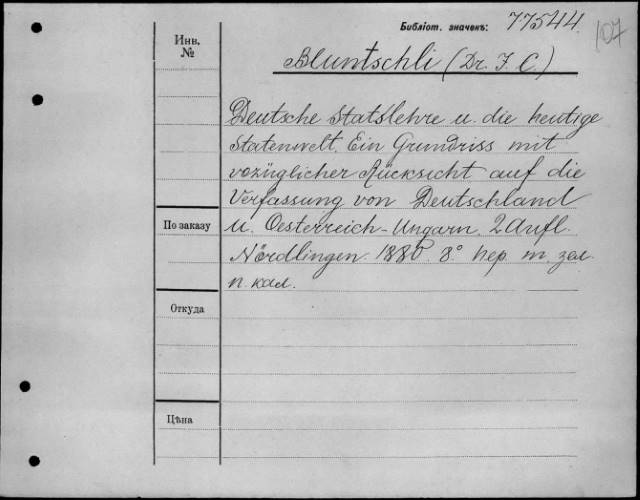 Библіот. значекъ: 77544.
107
Инв. №
Bluntschli (Dr. J. C.)
Deutsche Statslehre u. die heutige
Statenwelt. Ein Grundriss mit
vozüglicher Rücksicht auf die
Verfassung von Deutschland
По заказу
u. Oesterreich-Ungarn. 2 Aufl.
Nördlingen. 1880 8° пер. т. зел.
п. кал.
Откуда
Цѣна